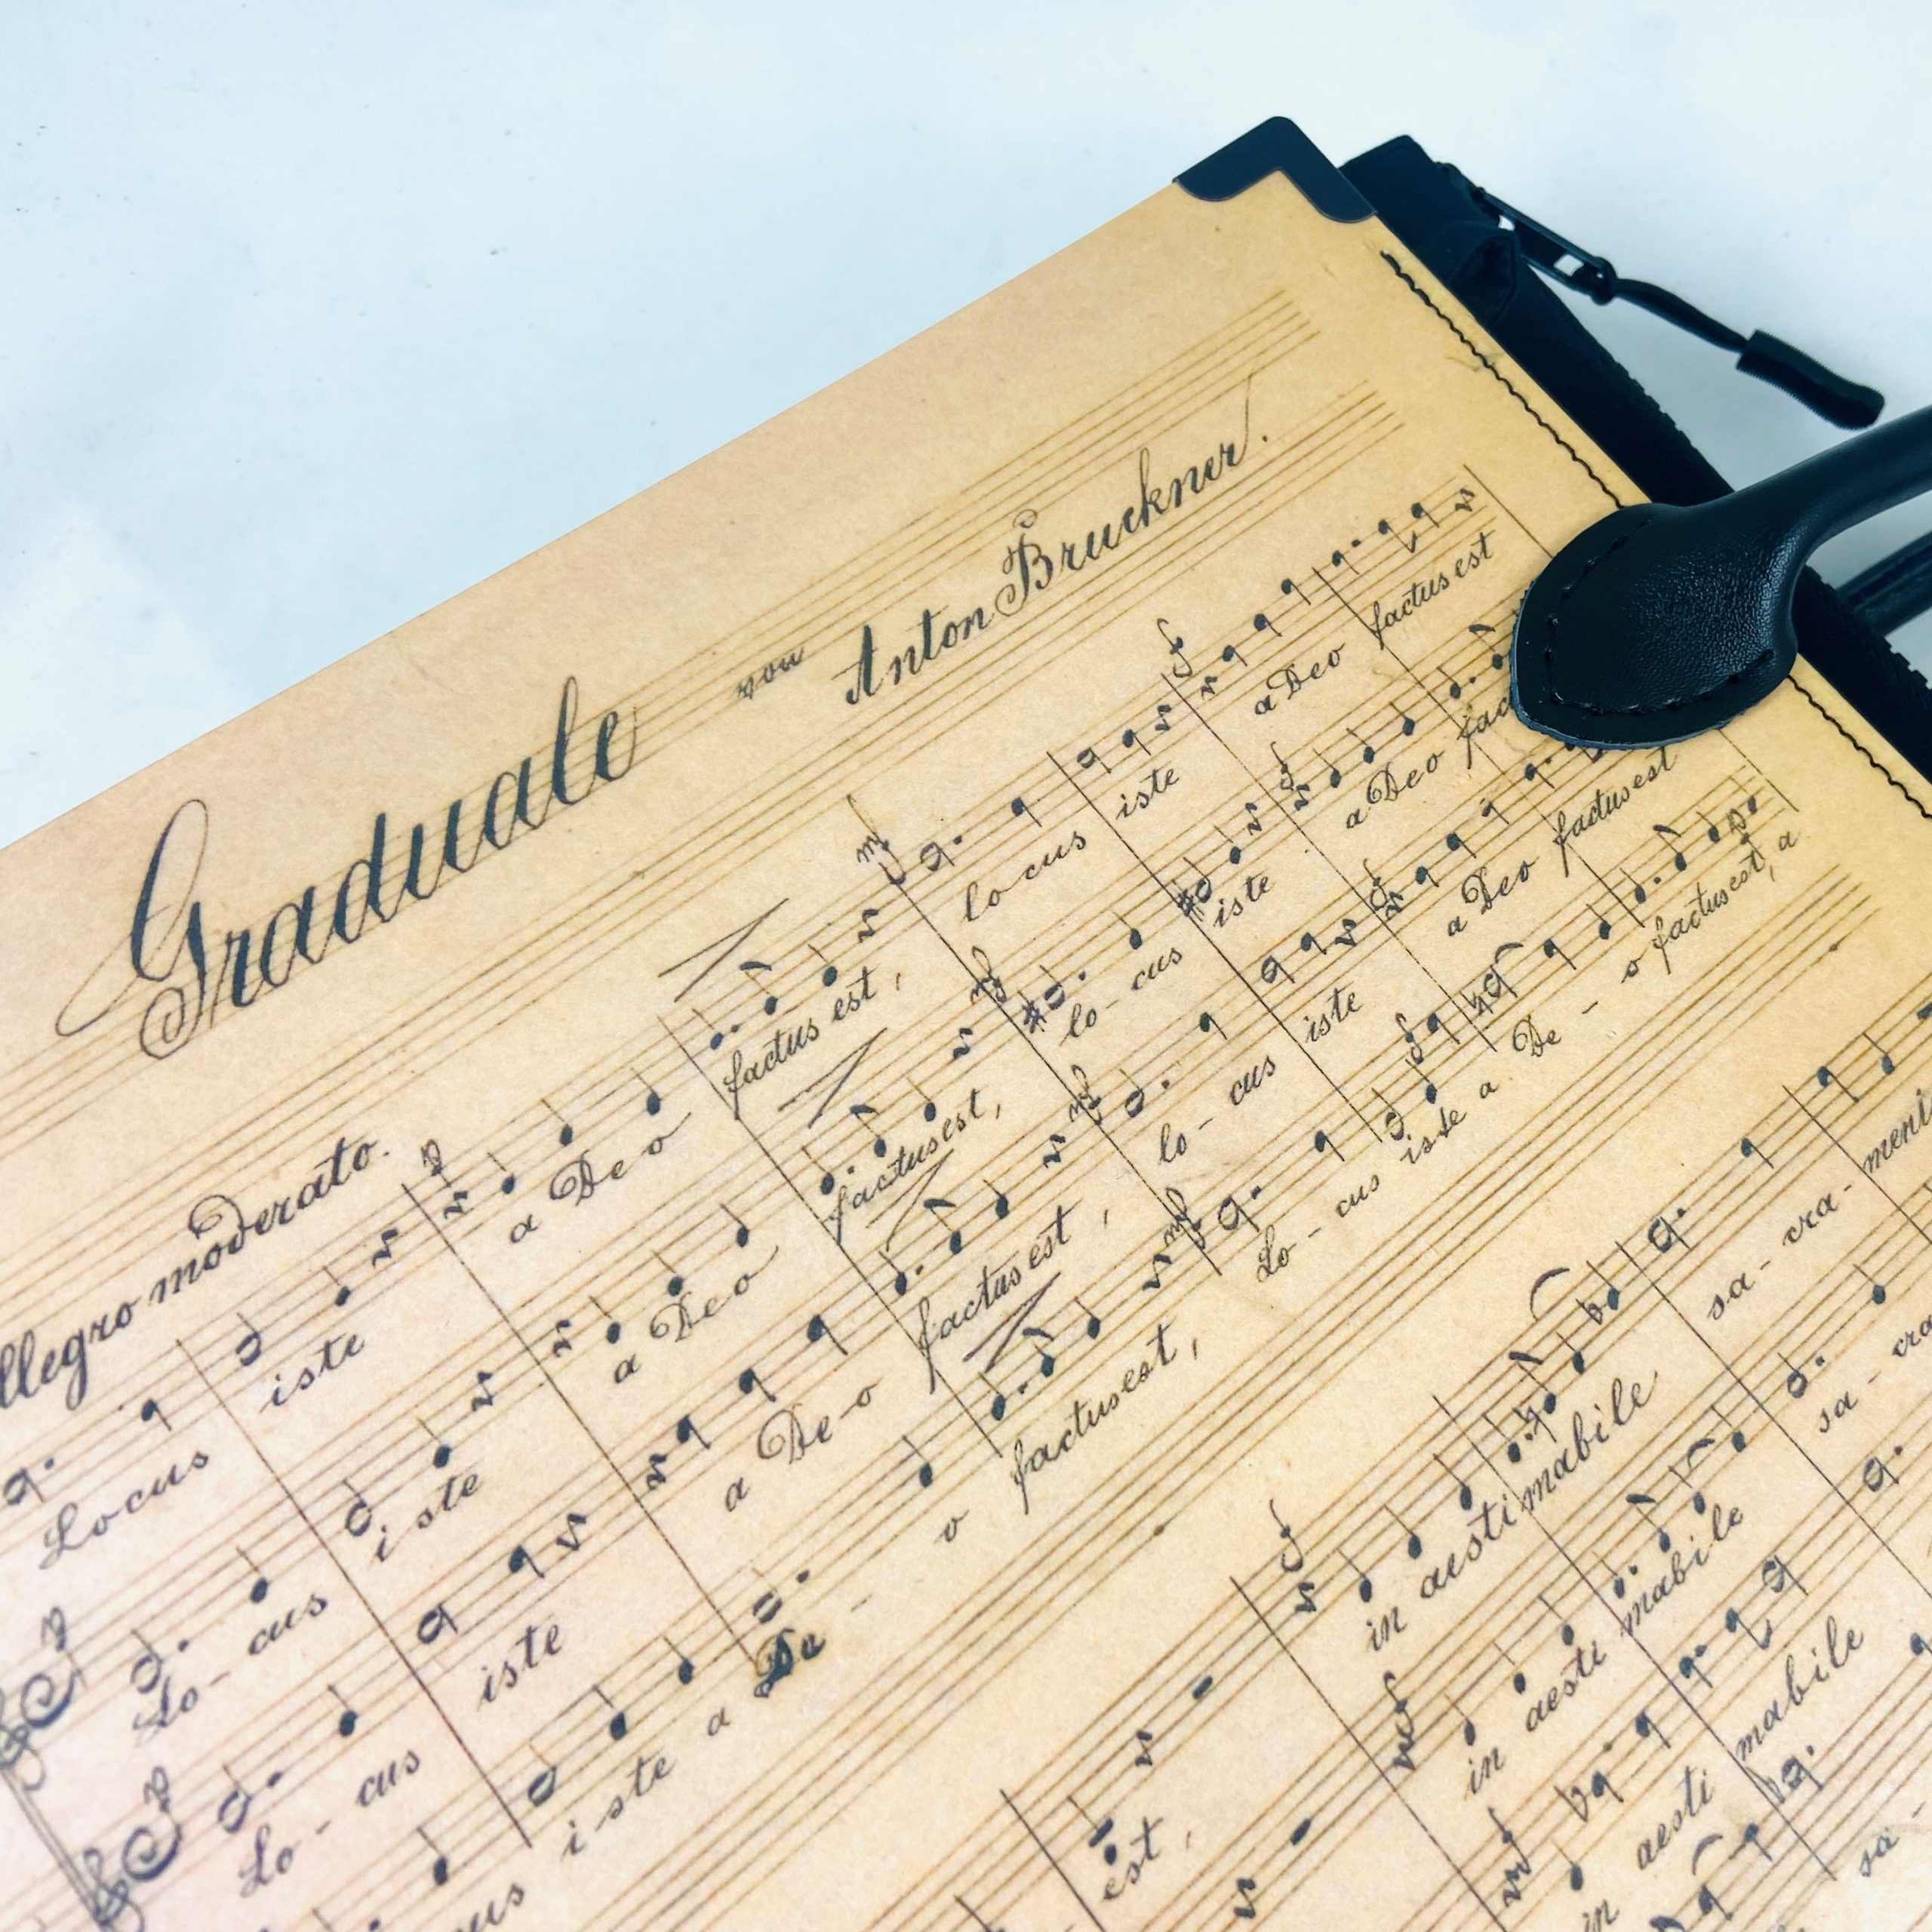 Graduale von Anton Bruckner.
llegro moderato.
p
mf
f
Locus iste a Deo factus est, locus iste a Deo factus est
p
mf
f
Lo- cus iste a Deo factus est, lo- cus iste a Deo fac
p
mf
f
Lo- cus iste a De-o factus est, lo- cus iste a Deo factus est
mf
f
cus iste a De - o factus est, Lo- cus iste a De - o factus est, a
f
est, in aestimabile sa- cra- ment
mf
in aesti mabile sa- cra
mf
in aesti mabile sa-